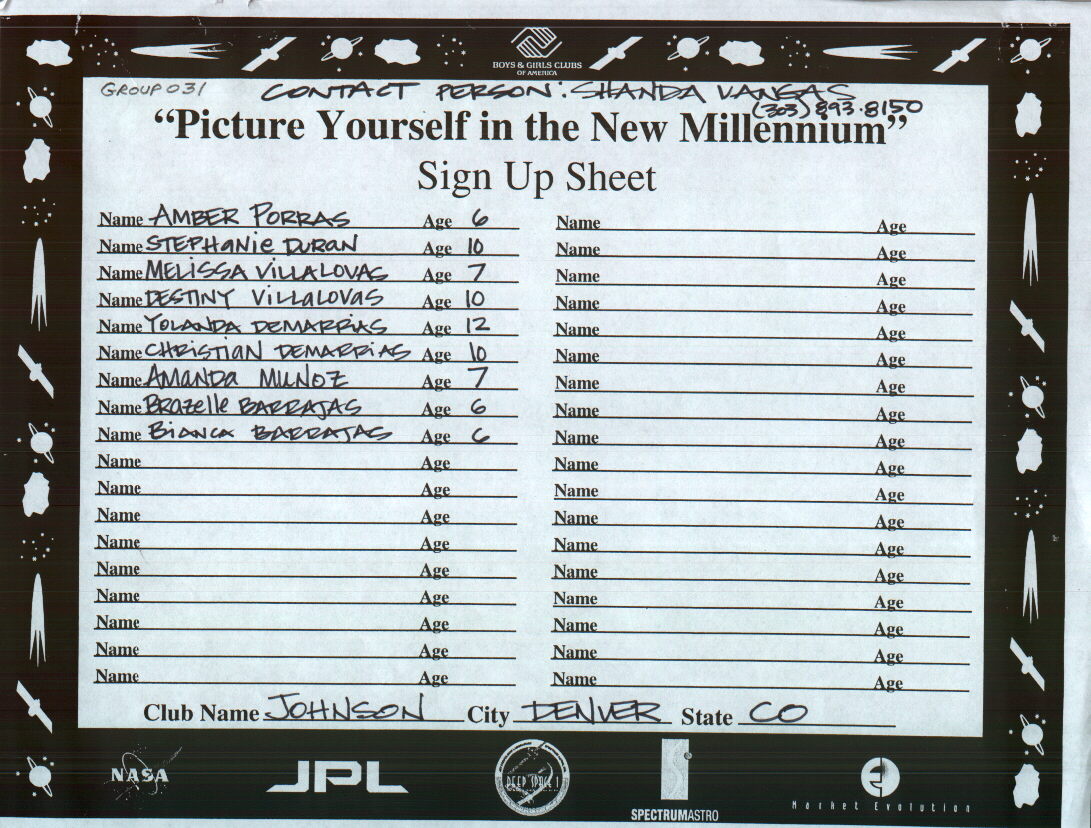 BOYS & GIRLS CLUBS
OF AMERICA
GROUP 031
CONTACT PERSON: SHANDA VANGAS
(303) 893-8150
“Picture Yourself in the New Millennium”
Sign Up Sheet
Name AMBER PORRAS Age 6 Name Age
Name STEPHANIE DURAN Age 10 Name Age
Name MELISSA VILLALOVAS Age 7 Name Age
Name DESTINY VILLALOVAS Age 10 Name Age
Name YOLANDA DEMARRIAS Age 12 Name Age
Name CHRISTIAN DEMARRIAS Age 10 Name Age
Name AMANDA MUNOZ Age 7 Name Age
Name BRAZELLE BARRAJAS Age 6 Name Age
Name BIANCA BARRAJAS Age 6 Name Age
Name Age Name Age
Name Age Name Age
Name Age Name Age
Name Age Name Age
Name Age Name Age
Name Age Name Age
Name Age Name Age
Name Age Name Age
Name Age Name Age
Club Name JOHNSON City DENVER State CO
NASA JPL DEEP SPACE 1 SPECTRUMASTRO Market Evolution